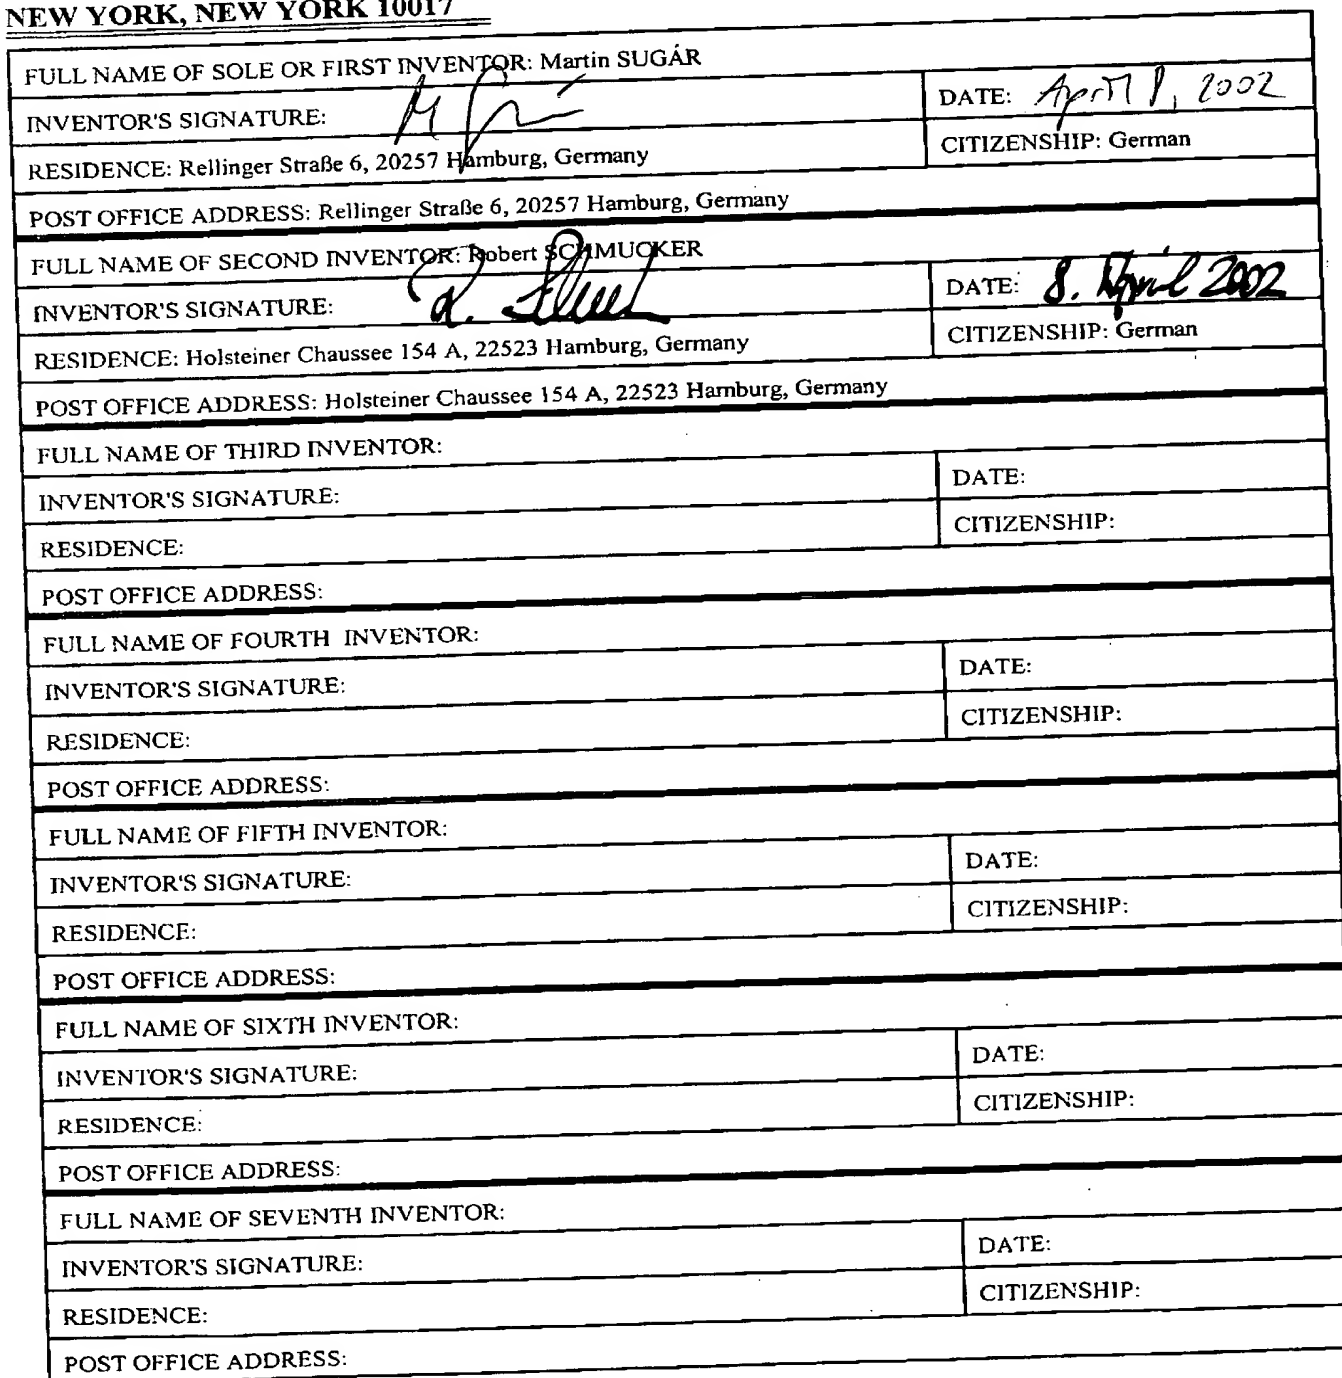 NEW YORK, NEW YORK 10017
FULL NAME OF SOLE OR FIRST INVENTOR: Martin SUGÁR
INVENTOR'S SIGNATURE:
DATE: April 8, 2002
RESIDENCE: Rellinger Straße 6, 20257 Hamburg, Germany
CITIZENSHIP: German
POST OFFICE ADDRESS: Rellinger Straße 6, 20257 Hamburg, Germany
FULL NAME OF SECOND INVENTOR: Robert SCHMUCKER
INVENTOR'S SIGNATURE: R.
DATE: 8. April 2002
RESIDENCE: Holsteiner Chaussee 154 A, 22523 Hamburg, Germany
CITIZENSHIP: German
POST OFFICE ADDRESS: Holsteiner Chaussee 154 A, 22523 Hamburg, Germany
FULL NAME OF THIRD INVENTOR:
INVENTOR'S SIGNATURE:
DATE:
RESIDENCE:
CITIZENSHIP:
POST OFFICE ADDRESS:
FULL NAME OF FOURTH INVENTOR:
INVENTOR'S SIGNATURE:
DATE:
RESIDENCE:
CITIZENSHIP:
POST OFFICE ADDRESS:
FULL NAME OF FIFTH INVENTOR:
INVENTOR'S SIGNATURE:
DATE:
RESIDENCE:
CITIZENSHIP:
POST OFFICE ADDRESS:
FULL NAME OF SIXTH INVENTOR:
INVENTOR'S SIGNATURE:
DATE:
RESIDENCE:
CITIZENSHIP:
POST OFFICE ADDRESS:
FULL NAME OF SEVENTH INVENTOR:
INVENTOR'S SIGNATURE:
DATE:
RESIDENCE:
CITIZENSHIP:
POST OFFICE ADDRESS: